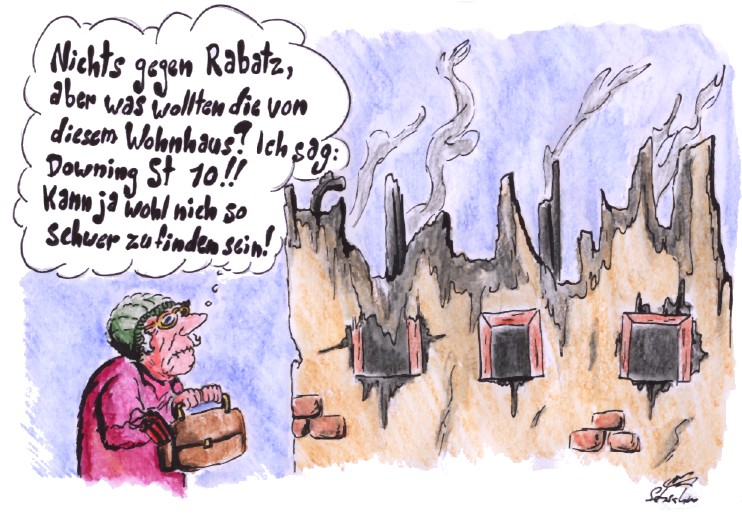 Nichts gegen Rabatz,
aber was wollten die von
diesem Wohnhaus? Ich sag:
Downing St 10!!
Kann ja wohl nich so
schwer zu finden sein!